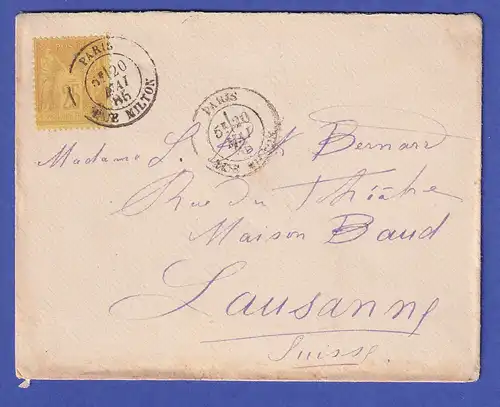 PARIS
5E 20
MAI
85
RUE MILTON
25
PARIS
5E 20
MAI
85
RUE MILTON
Madame L. Bernard
Rue du Théâtre
Maison Baud
Lausanne
Suisse